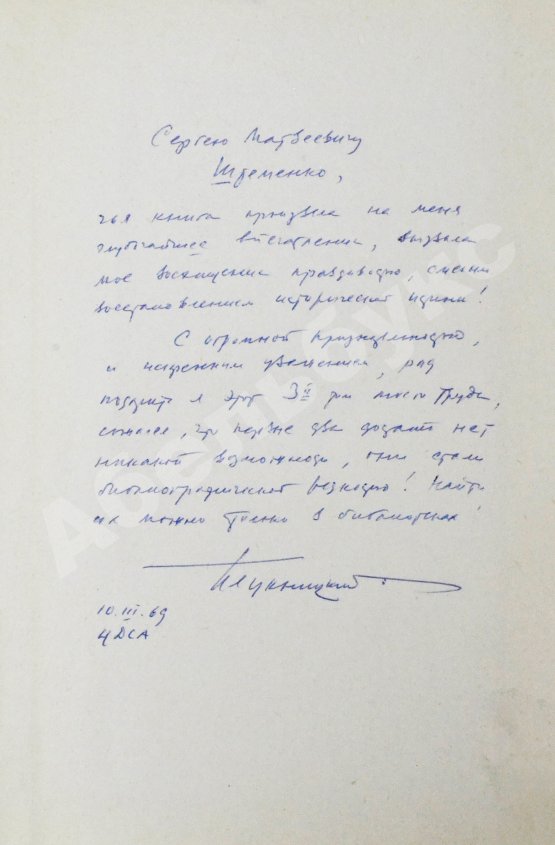 Сергею Матвеевичу
Штеменко,
чья книга произвела на меня
глубочайшее впечатление, вызвала
мое восхищение правдивостью, смелым
восстановлением исторической истины!
С огромной признательностью,
и искренним уважением, рад
подарить я этот 3й том моего труда,
сожалея, что первые два достать нет
никакой возможности, они стали
библиографической редкостью! Найти
их можно только в библиотеках!
ПЛукницкий
10.III.69
ЦДСА
Адельбукс